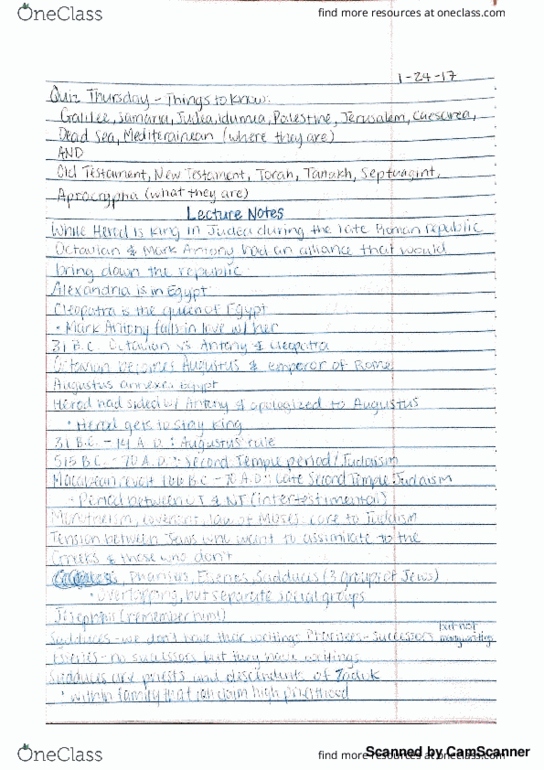 OneClass
find more resources at oneclass.com
1-24-17
Quiz Thursday - Things to know:
Galilee, Samaria, Judea, Idumea, Palestine, Jerusalem, Caesarea,
Dead Sea, Mediterainean (where they are)
AND
Old Testament, New Testament, Torah, Tanakh, Septuagint,
Aprocrypha (what they are)
Lecture Notes
While Herod is king in Judea during the late Roman republic
Octavian & Mark Antony had an alliance that would
bring down the republic
Alexandria is in Egypt
Cleopatra is the queen of Egypt
• Mark Antony falls in love w/ her
31 B.C. Octavian vs Antony & Cleopatra
Octavian becomes Augustus & emperor of Rome
Augustus annexes Egypt
Herod had sided w/ Antony & apologized to Augustus
• Herod gets to stay king
31 B.C. - 14 A.D.: Augustus rule
515 B.C. - 70 A.D.: Second Temple period/Judaism
Macabean revolt 166 B.C. - 70 A.D.: Late Second Temple Judaism
• Period between OT & NT (intertestimental)
Monotheism, covenent, law of Moses: core to Judaism
Tension between Jews who want to assimilate to the
Greeks & those who don't
Pharisies, Essenes, Sadduces (3 groups of Jews)
• Overlapping, but separate social groups
Josephus (remember him!)
Sadduces - we don't have their writings Pharisees - successors but not many writings
Essenes - no sucessors but they have writings
Sadduces are priests and descendents of Zadok
• within family that can claim high priesthood
OneClass
find more resources at oneclass.com
Scanned by CamScanner